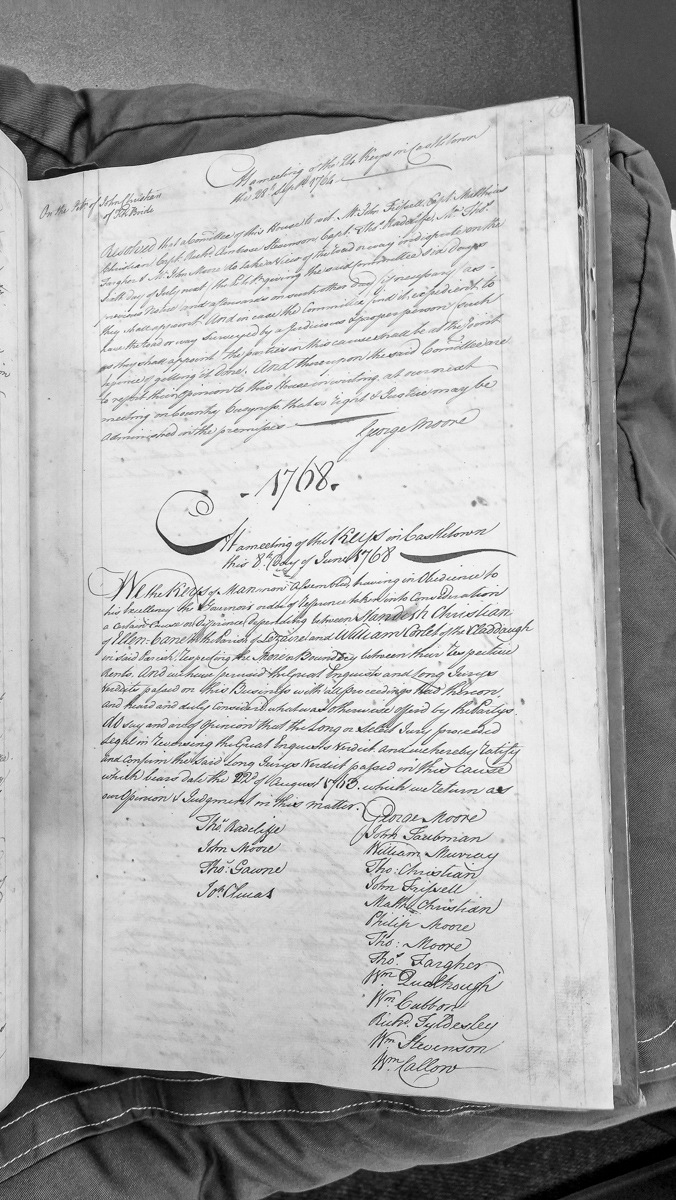 At a meeting of the 24 Keys in Castletown
the 28th Septr 1764
On the Petn of John Christian
of Kk Bride
Resolved that a Comittee of this House to wit, Mr John Frissell, Capt. Matthias
Christian, Capt. Richd Ambrose Stevenson, Capt. Thos Radcliffe, Mr Thos
Fargher & Mr John Moore do take a View of the Road or way in dispute on the
day of July next, the Petr giving the said Comittee six Days
previous Notice and afterwards on such other Day (if necessary) as
they shall appoint. And in case the Committee find it expedient to
have the Road or way surveyed by a judicious & proper person such
as they shall appoint the parties in this cause shall be at the Joint
Expence of getting it done. And thereupon the said Comittee are
to report their Opinion to this House in writing at our next
meeting on Country Business that so Right & Justice may be
administred in the premisses.
George Moore
- 1768. -
At a meeting of the Keys in Castletown
this 8th Day of June 1768
We the Keys of Man now Assembled, having in Obedience to
his Excellency the Governors order of Reference taken into Consideration
a certain Cause or Difference depending between Standish Christian
of Ellen-bane in the Parish of Lezayre and William Cortet of the Claddaugh
in said Parish, respecting the Mear or Boundary between their respective
Rents. And we have perused the Great Enquests and Long Jurys
Verdicts passed on this Business with all proceedings had thereon,
and heard and duly Considered what was otherwise offered by the Partys
do say and are of Opinion that the Long or Select Jury proceeded
Legal in reversing the Great Enquests Verdict. And we hereby ratify
and confirm the said Long Jurys Verdict passed in this Cause
which bears date the 22d of August 1763. which we return as
our Opinion & Judgment in this matter.
George Moore
Thos Radcliffe
John Taubman
John Moore
William Murray
Thos Gawne
Tho: Christian
Joh Clucas
John Frissell
Matths Christian
Philip Moore
Tho: Moore
Thos Fargher
Wm Qualtrough
Wm Cubbon
Richd Tyldesley
Wm Stevenson
Wm Callow